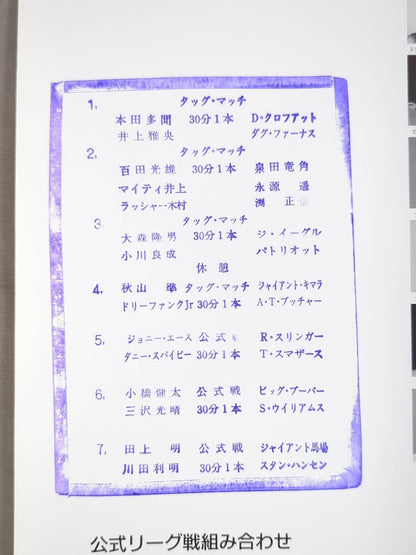 1. タッグ・マッチ
本田多聞 30分1本 D・クロフアット
井上雅央 ダグ・ファーナス
2. タッグ・マッチ
百田光雄 30分1本 泉田竜角
マイティ井上 永源遥
ラッシャー木村 渕正信
3. タッグ・マッチ
大森隆男 30分1本 ジ・イーグル
小川良成 パトリオット
休憩
4. 秋山準 タッグ・マッチ ジャイアント・キマラ
ドリーファンクJr 30分1本 A・T・ブッチャー
5. ジョニー・エース 公式 R・スリンガー
ダニー・スパイビー 30分1本 T・スマザース
6. 小橋健太 公式戦 ビッグ・ブーバー
三沢光晴 30分1本 S・ウイリアムス
7. 田上明 公式戦 ジャイアント馬場
川田利明 30分1本 スタン・ハンセン
公式リーグ戦組み合わせ